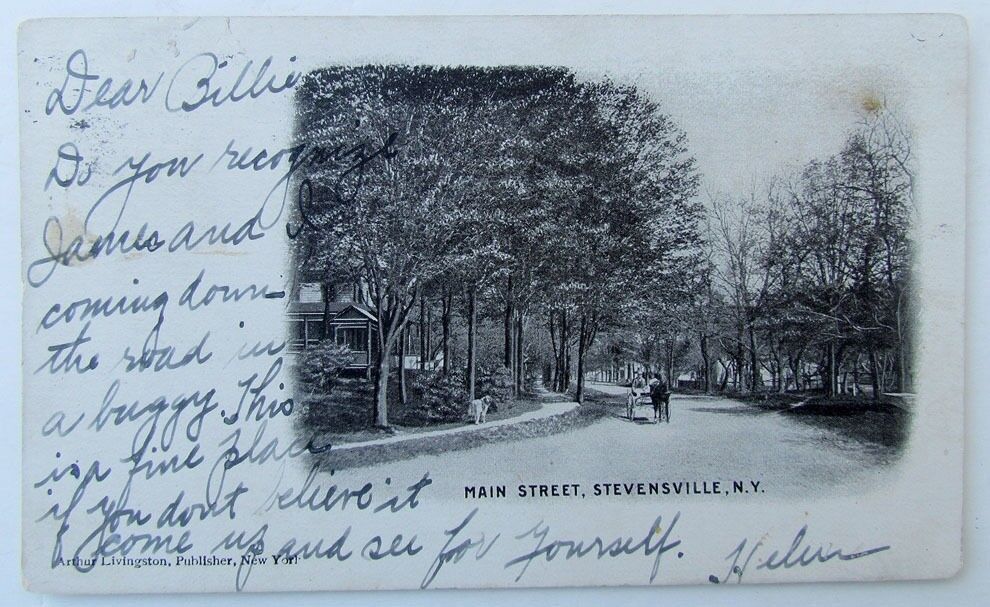 Dear Billie
Do you recognize
James and I
coming down
the road in
a buggy. This
is a fine place
if you don't believe it
come up and see for yourself.
Helen
MAIN STREET, STEVENSVILLE, N.Y.
Arthur Livingston, Publisher, New York